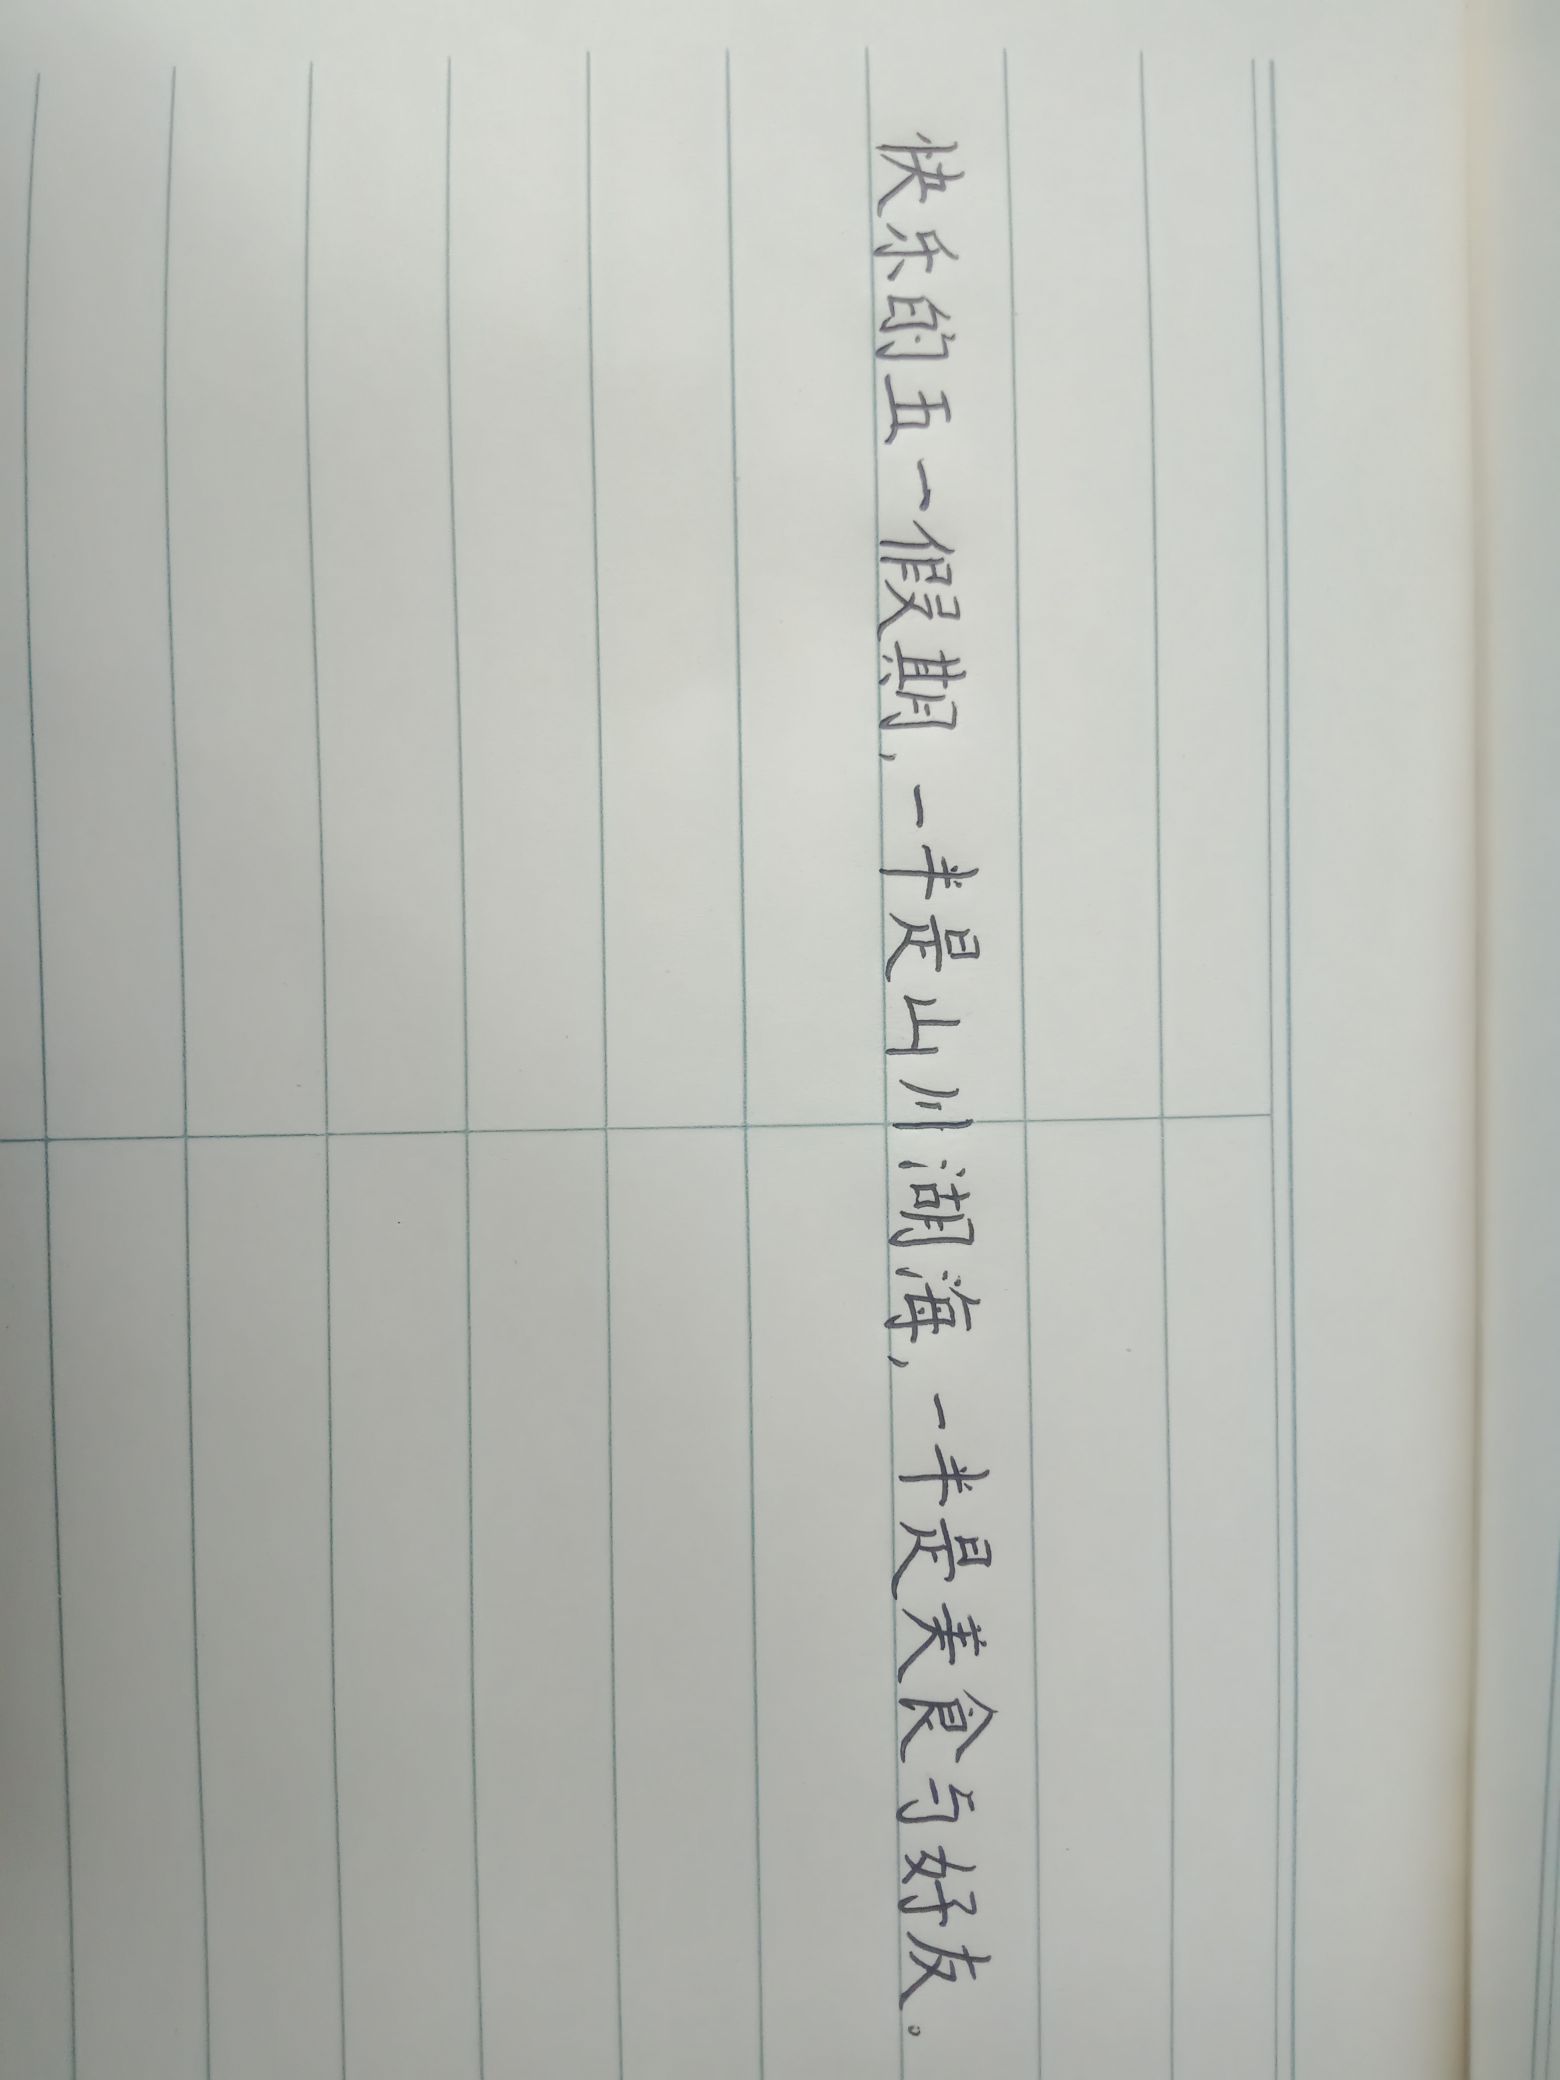 快乐的五一假期,一半是山川湖海,一半是美食与好友。